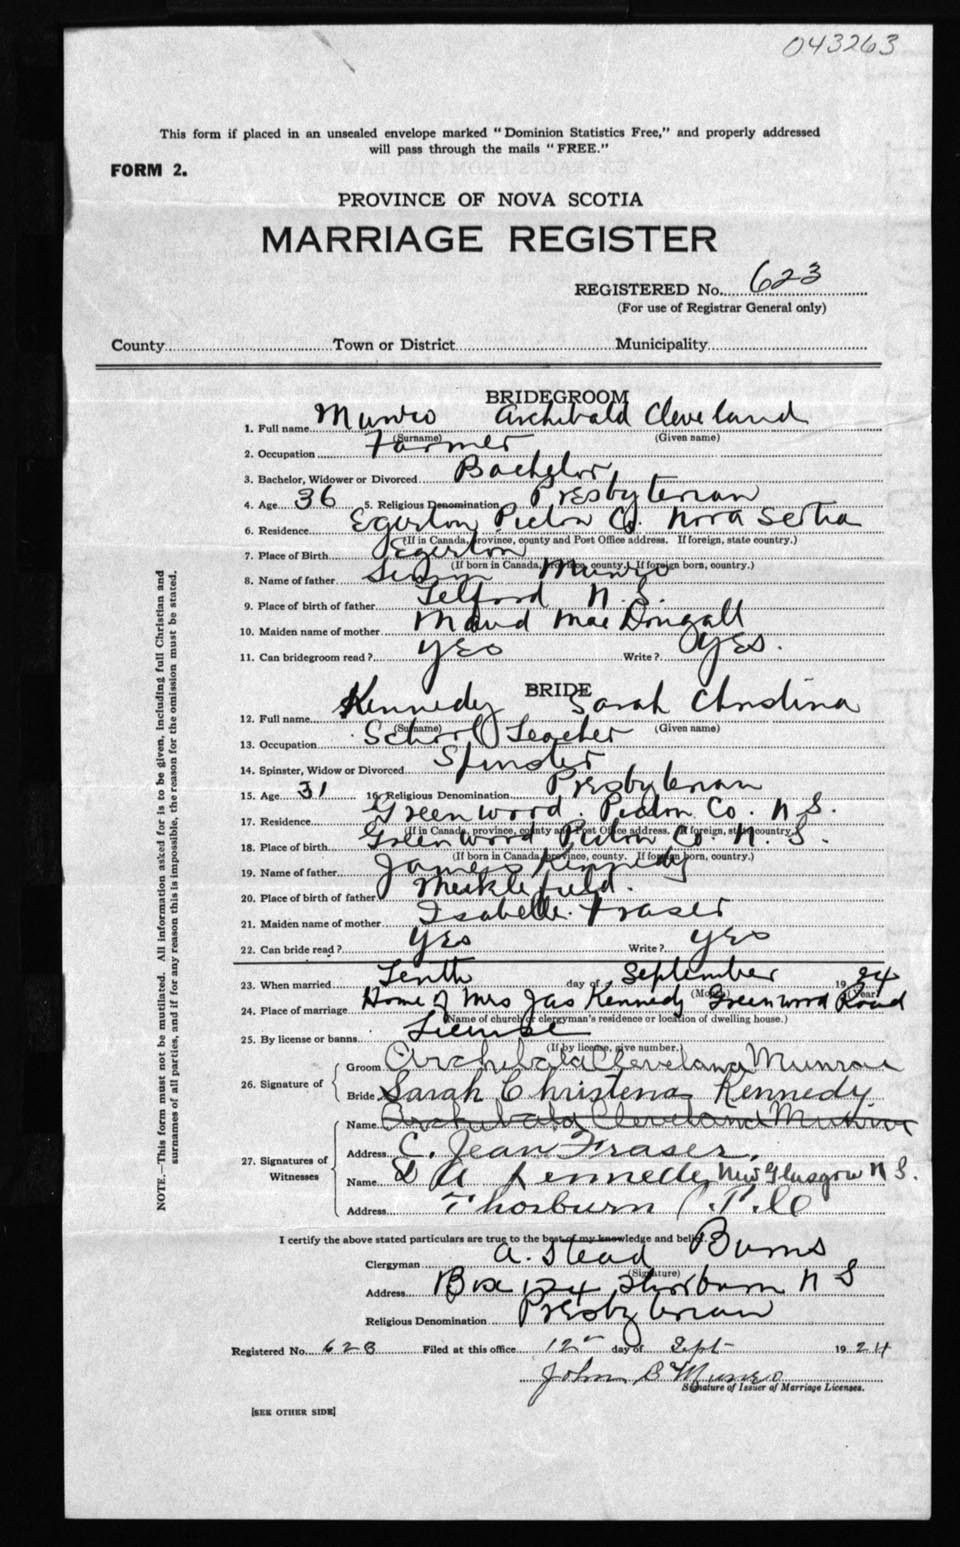 043263
This form if placed in an unsealed envelope marked "Dominion Statistics Free," and properly addressed
will pass through the mails "FREE."
FORM 2.
PROVINCE OF NOVA SCOTIA
MARRIAGE REGISTER
REGISTERED No. 623
(For use of Registrar General only)
County Town or District Municipality
BRIDEGROOM
1. Full name Munro Archibald Cleveland
(Surname) (Given name)
2. Occupation Farmer
3. Bachelor, Widower or Divorced Bachelor
4. Age 36 5. Religious Denomination Presbyterian
6. Residence Egerton Pictou Co. Nova Scotia
(If in Canada, province, county and Post Office address. If foreign, state country.)
7. Place of Birth Egerton
(If born in Canada, province, county. If foreign born, country.)
8. Name of father Munro
9. Place of birth of father Telford N. S.
10. Maiden name of mother Maud MacDongall
11. Can bridegroom read? yes Write? yes.
BRIDE
12. Full name Kennedy Sarah Christina
(Surname) (Given name)
13. Occupation School Teacher
14. Spinster, Widow or Divorced Spinster
15. Age 31 16. Religious Denomination Presbyterian
17. Residence Greenwood. Pictou Co. N S.
(If in Canada, province, county and Post Office address. If foreign, state country.)
18. Place of birth Greenwood Pictou Co. N. S.
(If born in Canada, province, county. If foreign born, country.)
19. Name of father James Kennedy
20. Place of birth of father Meiklefield.
21. Maiden name of mother Isabelle Fraser
22. Can bride read? yes Write? yes
23. When married Tenth day of September 1924
(Month) (Year)
24. Place of marriage Home of Mrs Jas Kennedy Greenwood Road
(Name of church or clergyman's residence or location of dwelling house.)
25. By license or banns License
(If by license, give number.)
26. Signature of
Groom Archibald Cleveland Munroe
Bride Sarah Christena Kennedy
27. Signatures of
Witnesses
Name Archibald Cleveland Munroe
Address C. Jean Fraser.
Name D A Kennedy New Glasgow N S.
Address Thorburn
I certify the above stated particulars are true to the best of my knowledge and belief.
Clergyman A. Stead Burns
(Signature)
Address Box 124 Thorburn N S
Religious Denomination Presbyterian
Registered No. 623 Filed at this office 12 day of Sept 1924
John B Munro
Signature of Issuer of Marriage Licenses.
[SEE OTHER SIDE]
NOTE.—This form must not be mutilated. All information asked for is to be given, including full Christian and
surnames of all parties, and if for any reason this is impossible, the reason for the omission must be stated.